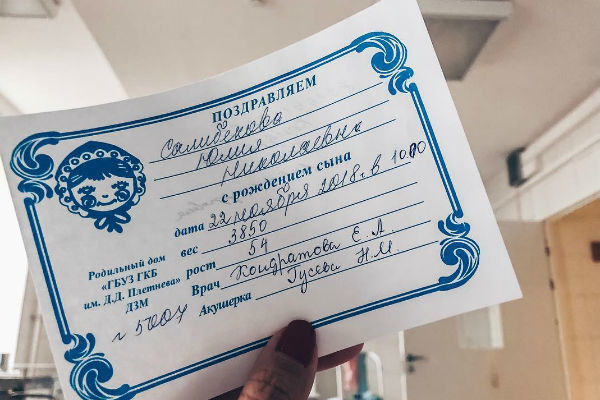 ПОЗДРАВЛЯЕМ
Салибекова
Юлия
Николаевна
с рождением сына
дата 22 ноября 2018г. в 10 00
вес 3850
рост 54
Врач Кондратова Е. А.
Акушерка Гусева Н. М.
Родильный дом
«ГБУЗ ГКБ
им. Д.Д. Плетнева»
ДЗМ
5007